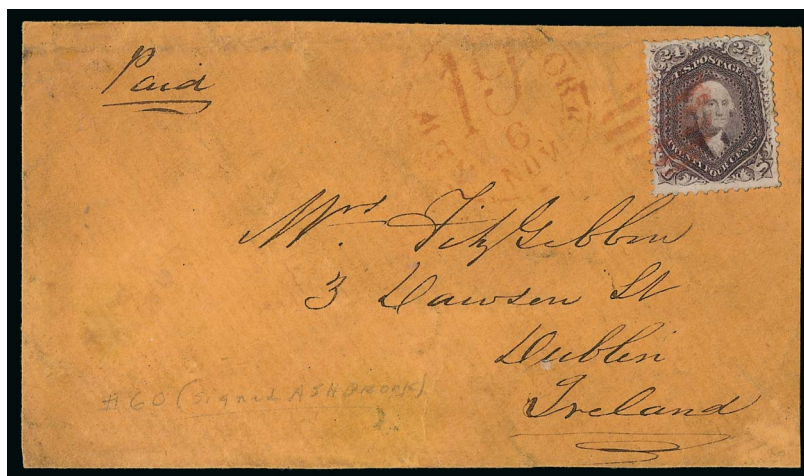 Paid
19
NEW YORK
6
NOV
24 24
U.S. POSTAGE
TWENTY FOUR CENTS
U S
Mrs. FitzGibbon
3 Dawson St
Dublin
Ireland
#60 (Signed ASHBROOK)